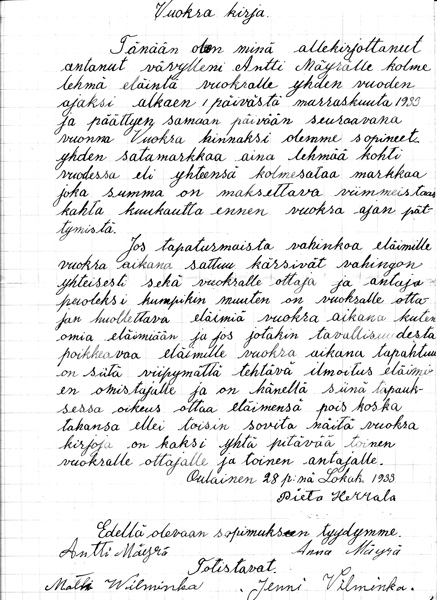 Vuokra kirja.
Tänään olen minä allekirjottanut
antanut vävylleni Antti Mäyrälle kolme
lehmä eläintä vuokralle yhden vuoden
ajaksi alkaen 1 päivästä marraskuuta 1933
ja päättyen samaan päivään seuraavana
vuonna Vuokra hinnaksi olemme sopineet
yhden satamarkkaa aina lehmää kohti
vuodessa eli yhteensä kolmesataa markkaa
joka summa on maksettava viimmeistään
kahta kuukautta ennen vuokra ajan päät-
tymistä.
Jos tapaturmaista vahinkoa eläimille
vuokra aikana sattuu kärsivät vahingon
yhteisesti sekä vuokralle ottaja ja antaja
puoleksi kumpikin muuten on vuokralle otta-
jan huollettava eläimiä vuokra aikana kuten
omia eläimiään ja jos jotakin tavallisuudesta
poikkeavaa eläimille vuokra aikana tapahtuu
on siitä viipymättä tehtävä ilmoitus eläimi-
en omistajalle ja on hänellä siinä tapauk-
sessa oikeus ottaa eläimensä pois koska
tahansa ellei toisin sovita näitä vuokra
kirjoja on kaksi yhtä pitävää toinen
vuokralle ottajalle ja toinen antajalle.
Oulainen 28 p:nä Lokak. 1933
Pieta Herrala
Edellä olevaan sopimukseen tyydymme.
Antti Mäyrä Anna Mäyrä
Totistavat.
Matti Wilminka Jenni Vilminka.